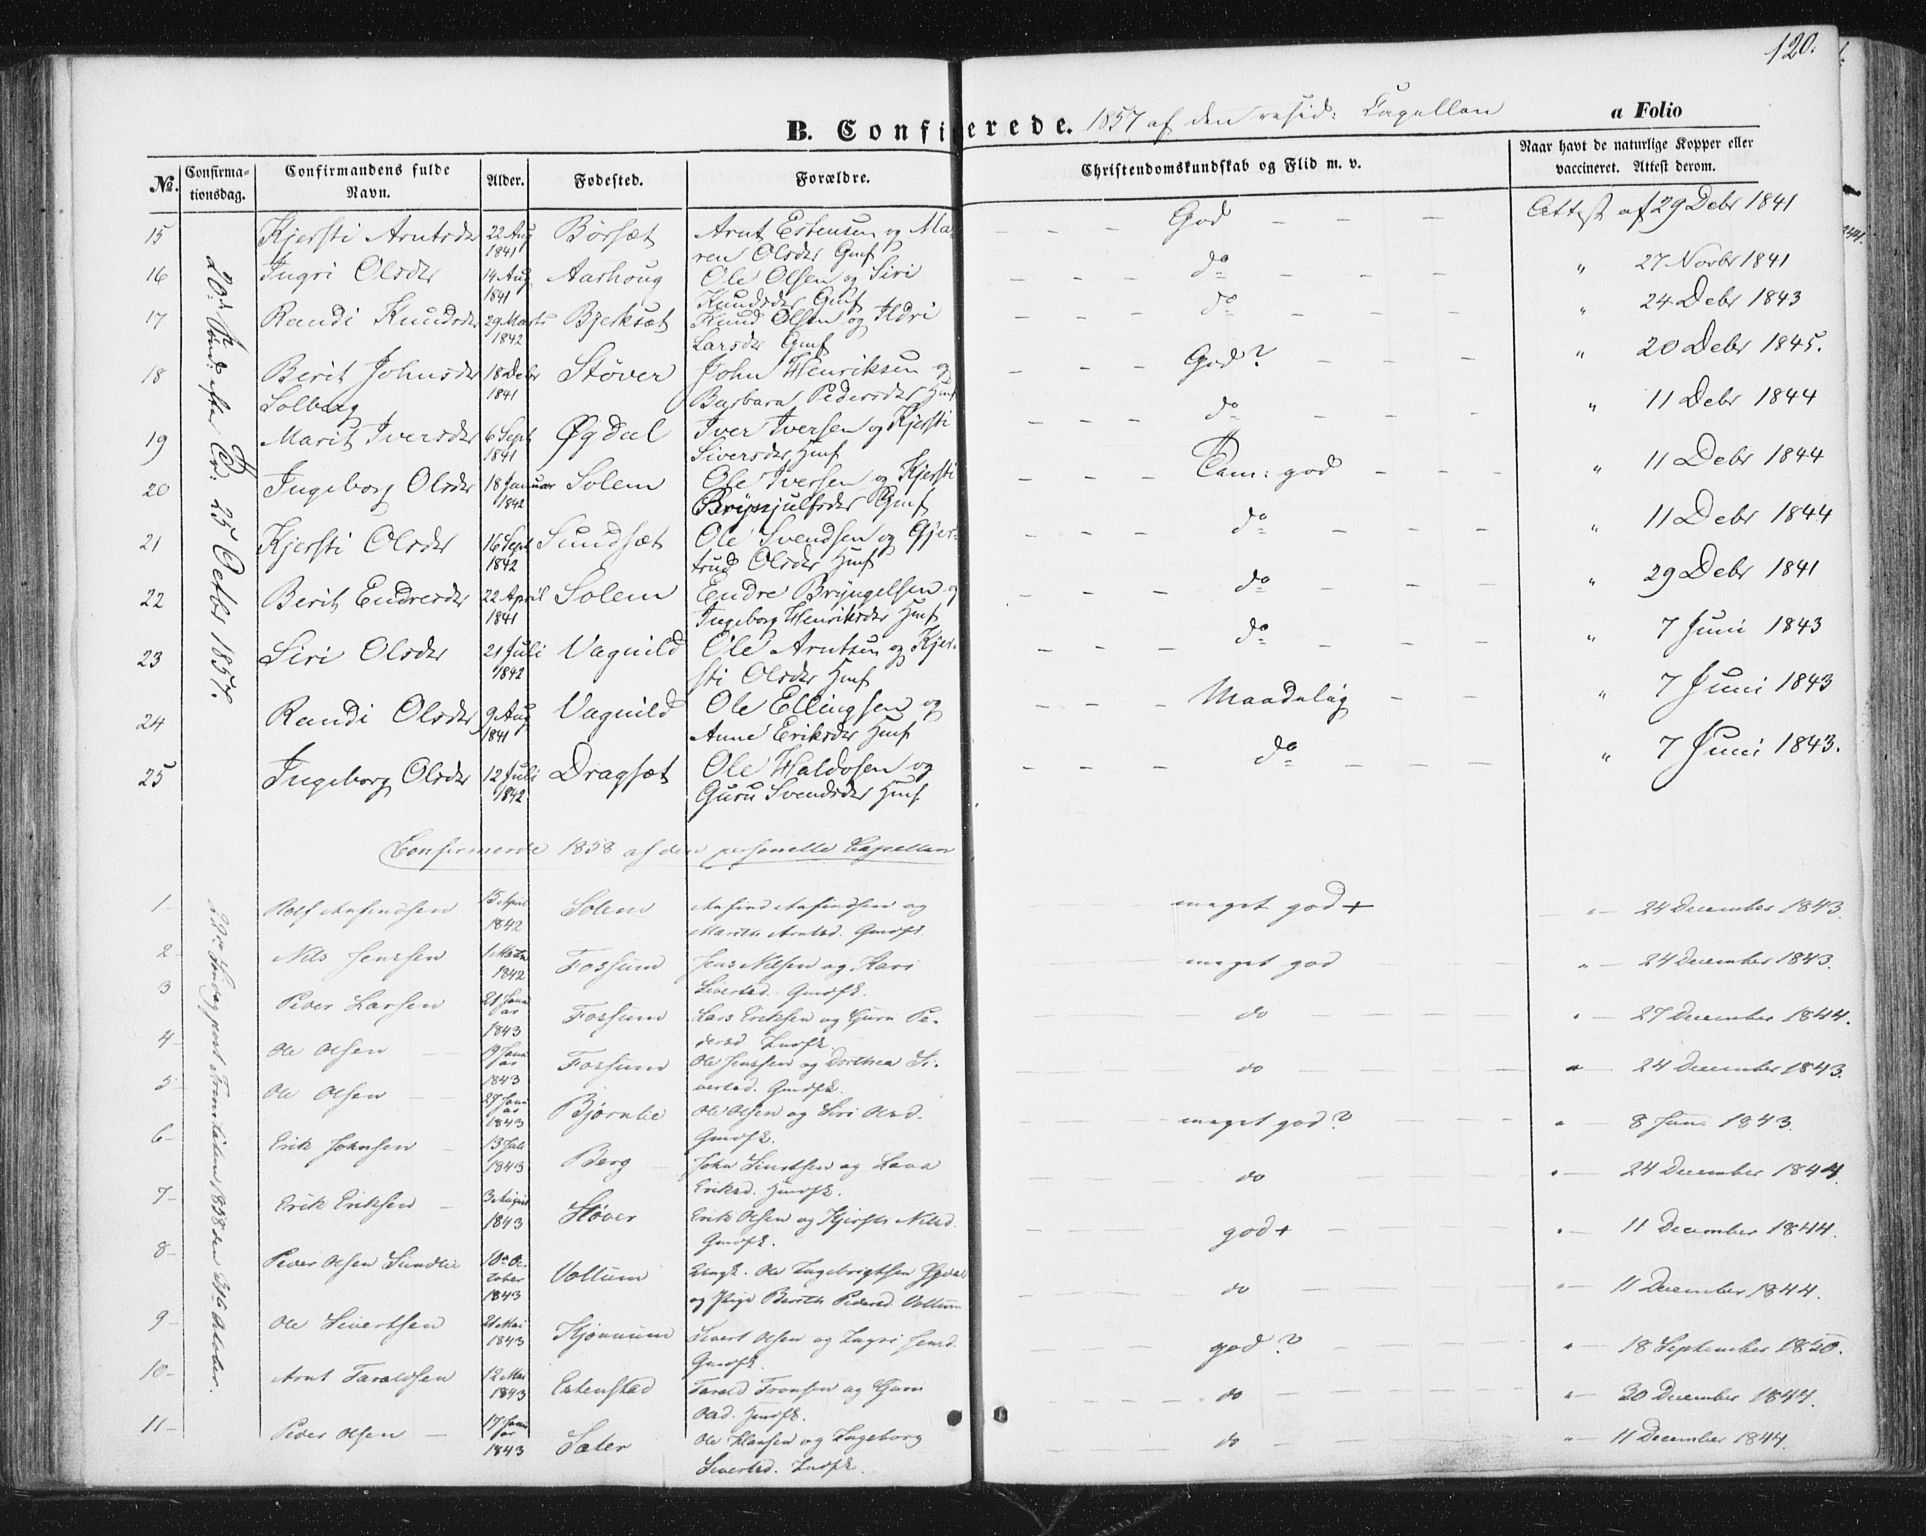 120.
B. Confirmerede. 1857 af den resid: Capellan
a Folio
No. Confirmationsdag. Confirmandens fulde Navn. Alder. Fødested. Forældre. Christendomskundskab og Flid m. v. Naar havt de naturlige Kopper eller vaccineret. Attest derom.
25 Octbr 1857.
15 Kjersti Arntsdr 22 Aug 1841 Børsæt Arnt Estensen og Maren Olsdr Gmf God Attest af 29 Debr 1841
16 Ingri Olsdr 14 Aug 1841 Aarhoug Ole Olsen og Siri Knudsdr Gmf do " 27 Novbr 1841
17 Randi Knudsdr 29 Marts 1842 Bjerksæt Knud Olsen og Ildri Larsdr Gmf do " 24 Debr 1843
18 Berit Johnsdr Solberg 18 Debr 1841 Støver John Henriksen og Barbara Pedersdr Hmf God? " 20 Debr 1845.
19 Marit Iversdr 6 Sept 1841 Øgdal Iver Iversen og Kjersti Siversdr Hmf do " 11 Debr 1844
20 Ingeborg Olsdr 18 Januar 1842 Solem Ole Iversen og Kjersti Brynjulfsdr Gmf Tem: god " 11 Debr 1844
21 Kjersti Olsdr 16 Sept 1842 Sundsæt Ole Svendsen og Gjertrud Olsdr Hmf do " 11 Debr 1844
22 Berit Endresdr 22 April 1841 Solem Endre Bryngelsen og Ingeborg Henriksdr Hmf do " 29 Debr 1841
23 Siri Olsdr 21 Juli 1842 Vagnild Ole Arntsen og Kjersti Olsdr Hmf do " 7 Juni 1843
24 Randi Olsdr 9 Aug 1841 Vagnild Ole Ellingsen og Anne Eriksdr Hmf Maadelig " 7 Juni 1843
25 Ingeborg Olsdr 12 Juli 1842 Dragsæt Ole Haldosen og Guru Svendsdr Hmf do " 7 Juni 1843.
Confirmerede 1858 af den personelle Capellan
1 Rolf Anfindsen 15 April 1842 Solem Anfind Anfindsen og Marith Arntsd. Gmdfk. meget god+ " 24 December 1843.
2 Nils Jenssen 1 Marts 1842 Fossum Jens Nilsen og Kari Sivertsd. Gmdfk. meget god " 24 December 1843.
3 Peder Larsen 21 Januar 1843 Fossum Lars Eriksen og Guru Pedersd. do " 27 December 1844.
4 Ole Olsen 9 Januar 1843 Fossum Ole Jenssen og Dorthea Sivertsd. Gmdfk. do " 24 December 1843.
5 Ole Olsen 27 Januar 1843 Bjørnlie Ole Olsen og Siri Olsd. Gmdfk. meget god? " 8 Juni 1843.
6 Erik Johnsen 13 Juli 1843 Berg John Sivertsen og Eriksd. Hmdfk. do " 24 December 1844.
7 Erik Eriksen 3 August 1843 Støver Erik Olsen og Kjersti Nilsd. Gmdfk. god+ " 11 December 1844.
8 Peder Olsen Sundlie 10de October 1843 Vollum Ungk. Ole Ingebrigtsen og Pige Berith Pedersd. Vollum do " 11 December 1844.
9 Ole Sivertsen 21 Mai 1843 Kjønnum Sivert Olsen og Ingri Jensd. Gmdfk. god? " 18 September 1850.
10 Arnt Taraldsen 12 Mai 1843 Estenstad Tarald Tronsen og Guru Olsd. Hmdfk. do " 30 December 1844.
11 Peder Olsen 17 Januar 1843 Sæter Ole Hansen og Ingeborg Sivertsd. do " 11 December 1844.